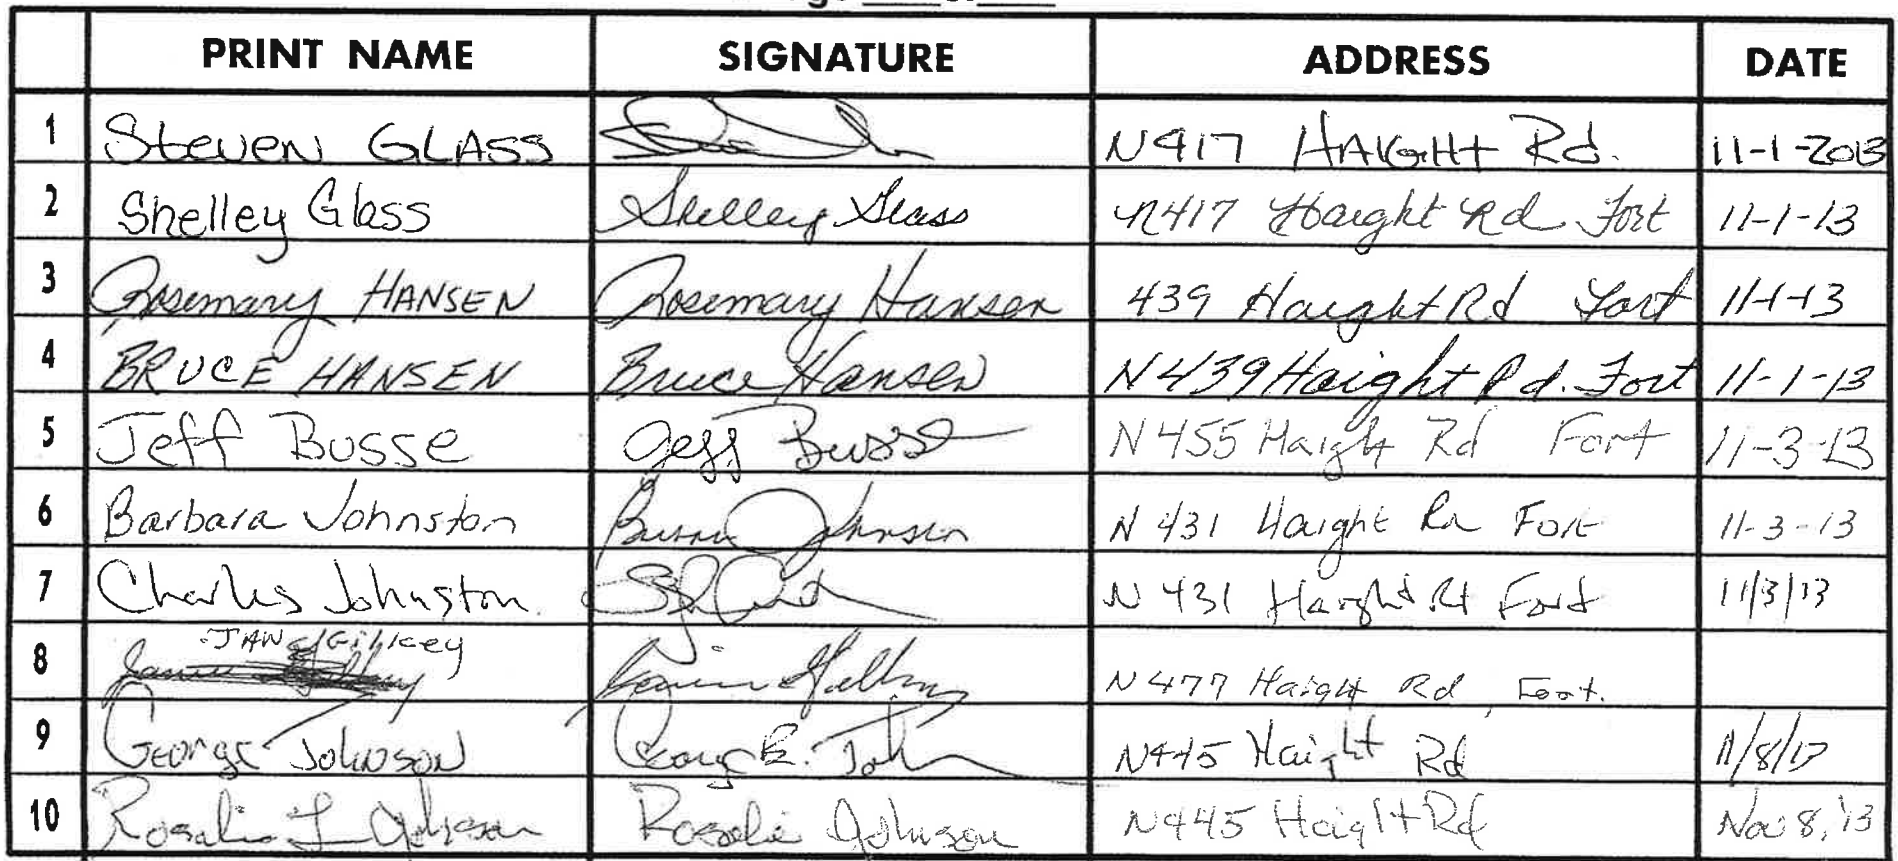 PRINT NAME SIGNATURE ADDRESS DATE
1 Steven GLASS N417 HAIGHT Rd. 11-1-2013
2 Shelley Glass Shelley Glass N417 Haight Rd Fort 11-1-13
3 Rosemary HANSEN Rosemary Hansen 439 Haight Rd Fort 11-1-13
4 BRUCE HANSEN Bruce Hansen N439 Haight Rd. Fort 11-1-13
5 Jeff Busse Jeff Busse N455 Haight Rd Fort 11-3-13
6 Barbara Johnston N 431 Haight Rd Fort 11-3-13
7 Charles Johnston. N 431 Haight Rd Fort 11/3/13
8 N477 Haight Rd, Fort.
9 George Johnson George E. John N445 Haight Rd 11/8/13
10 Rosalie L Johnson Rosalie Johnson N445 Haight Rd Nov 8, 13